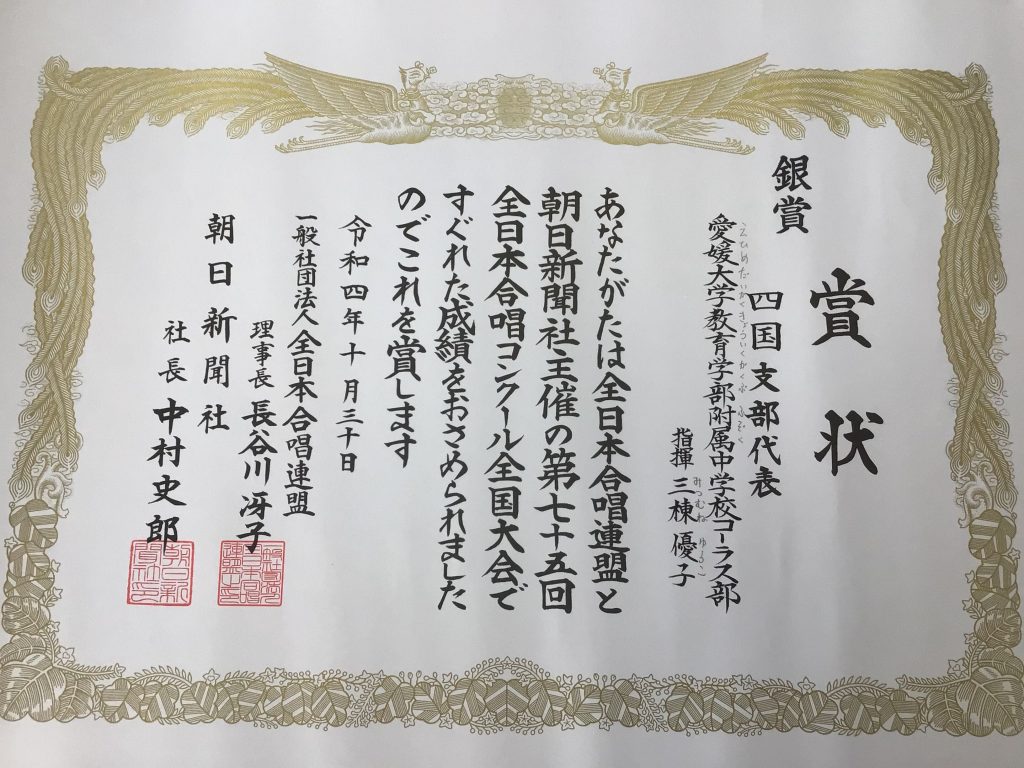 賞状
銀賞
四国支部代表
愛媛大学教育学部附属中学校コーラス部
えひめだいがくきょういくがくぶ ふぞく
指揮 三棟優子
みつむね ゆうこ
あなたがたは全日本合唱連盟と
朝日新聞社主催の第七十五回
全日本合唱コンクール全国大会で
すぐれた成績をおさめられました
のでこれを賞します
令和四年十月三十日
一般社団法人全日本合唱連盟
理事長 長谷川冴子
朝日新聞社
社長 中村史郎